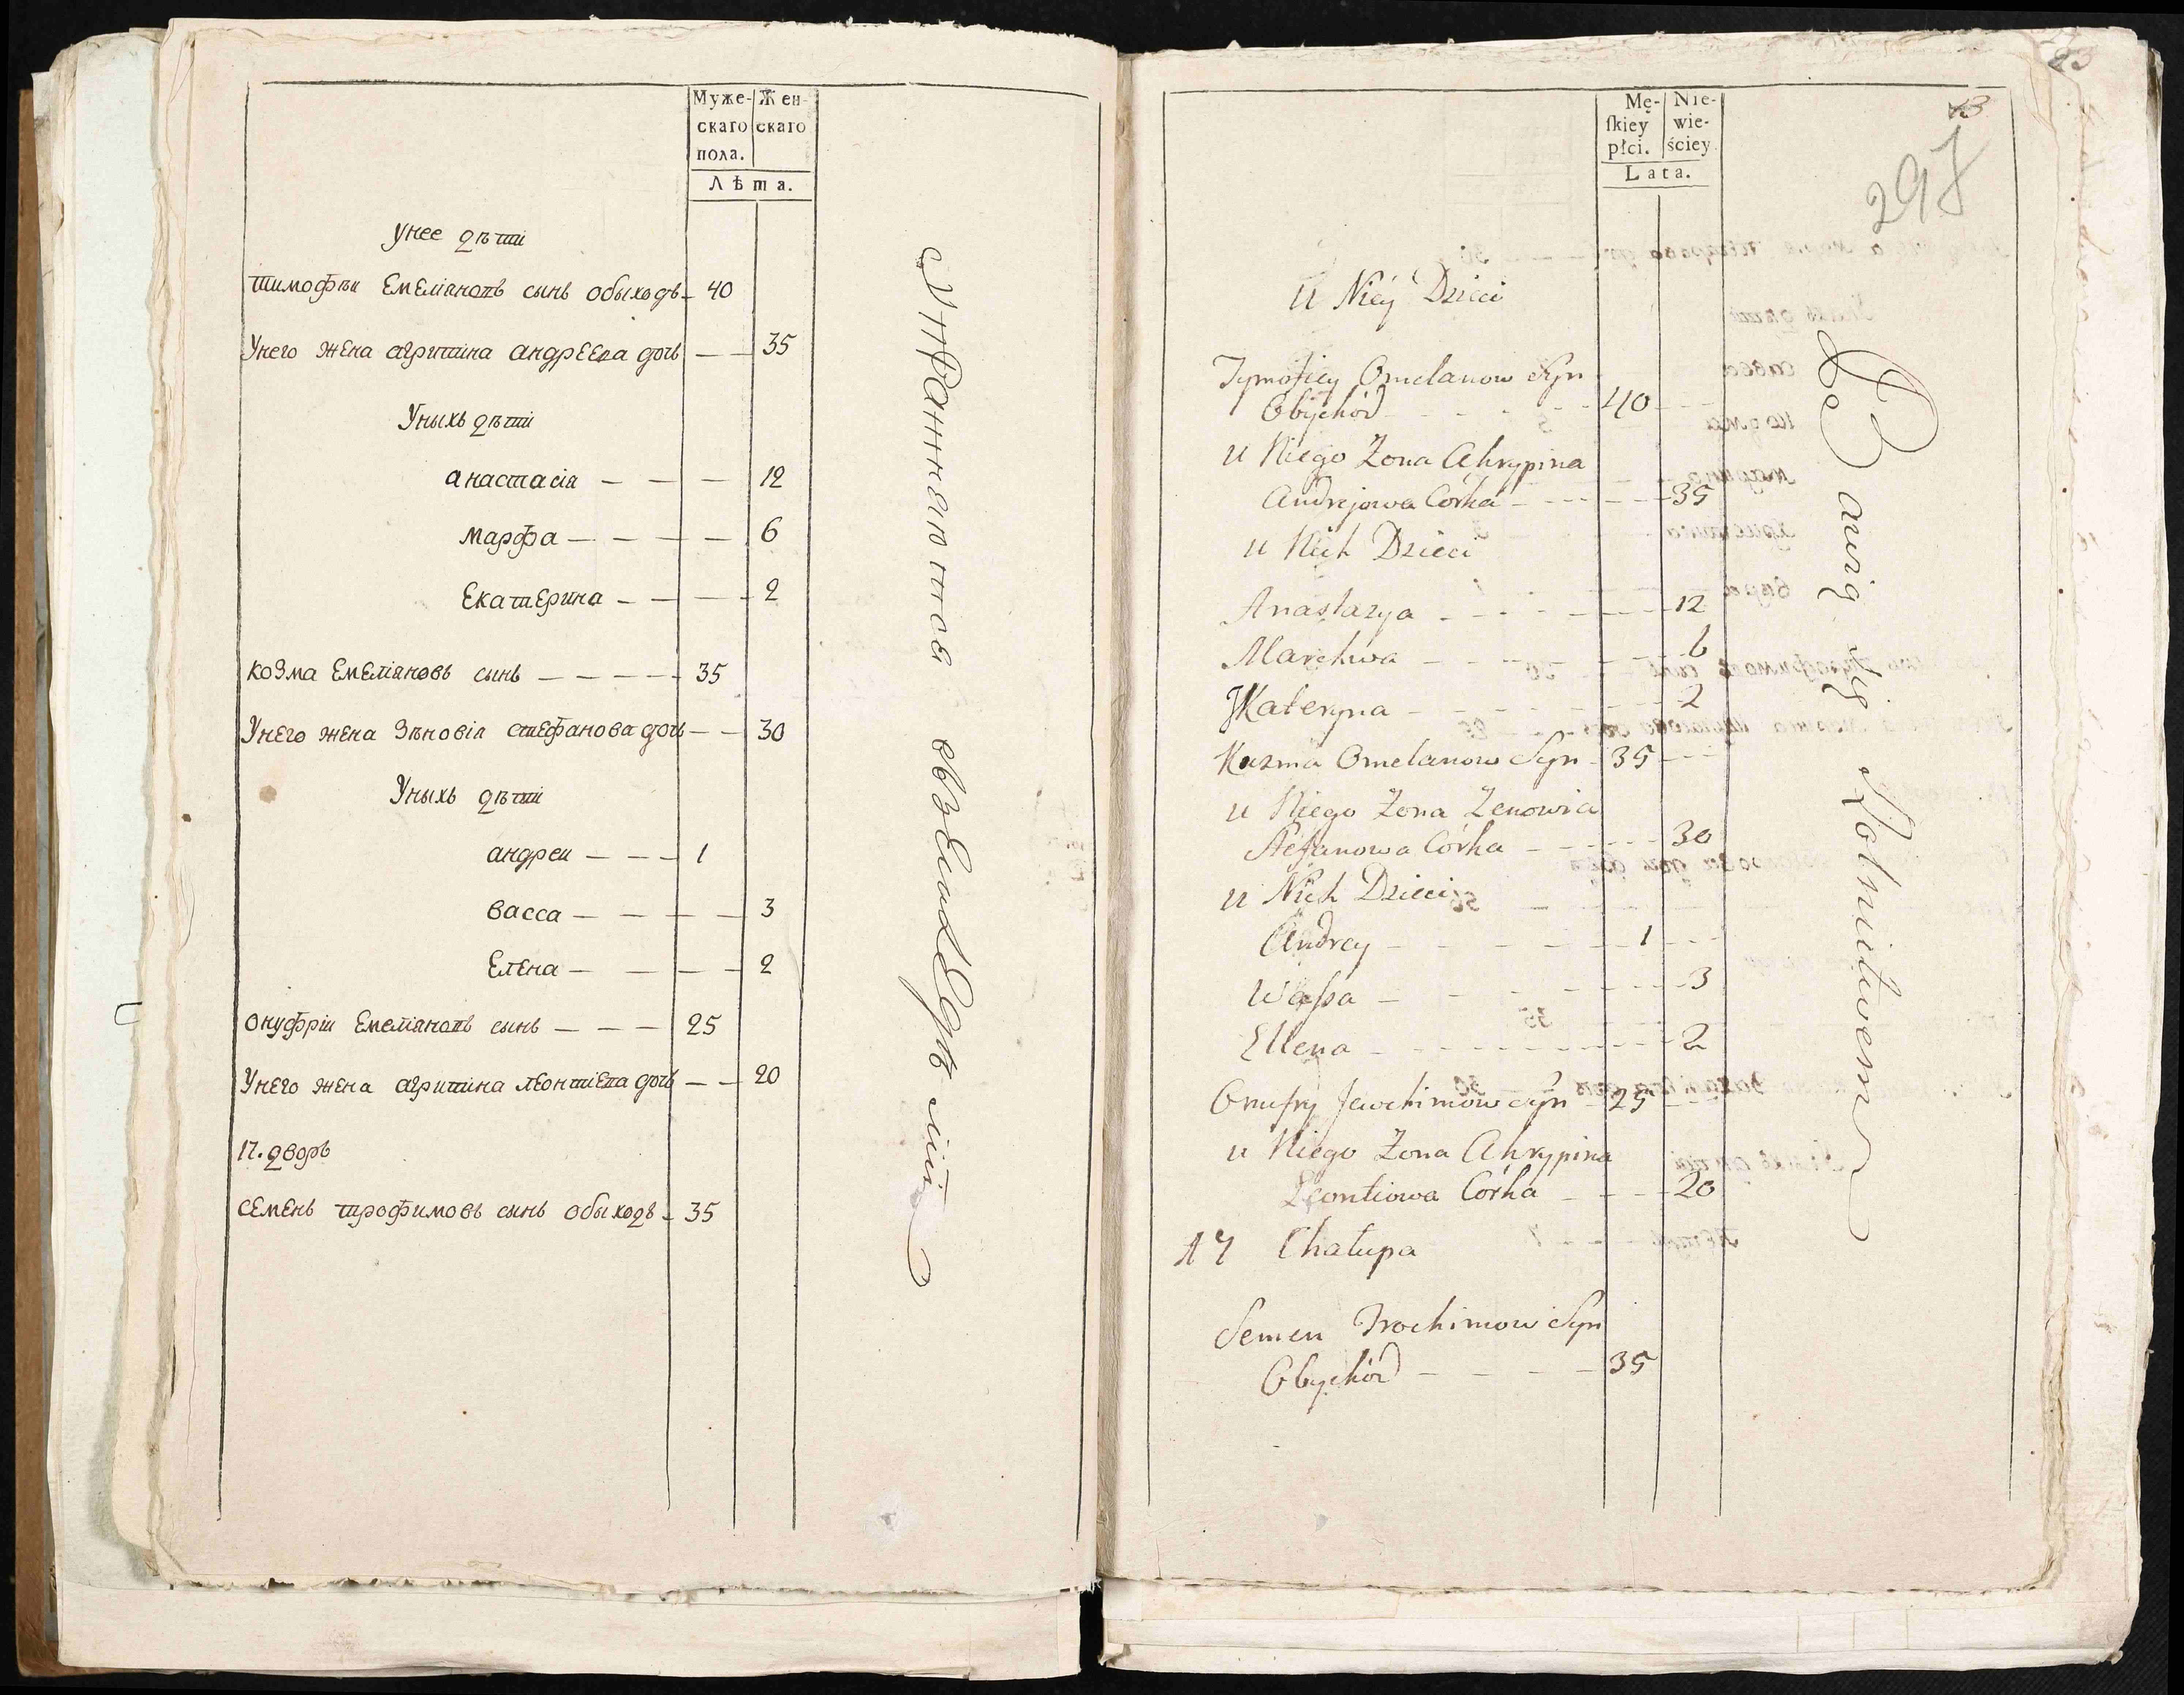 Муже-
скаго
пола.
Жен-
скаго
Лѣта.
унее дѣти
тимофѣи Емелiановъ сынъ обыходъ 40
Унего жена агрипина андреева дочь — — 35
Уныхъ дѣти
анастасiя — — — 12
марфа — — — — 6
Екатерина — — — 2
козма Емелiановъ сынъ — — — — 35
Унего жена Зѣновiя стефанова дочь — — 30
Уныхъ дѣти
андреи — — — 1
васса — — — — 3
Елена — — — — 2
онуфрiи Емелiановъ сынъ — — — 25
Унего жена агрипина леонтiева дочь — — 20
17. дворъ
семенъ трофимовъ сынъ обыходъ 35
83
13
297
Mę-
ſkiey
płci.
Nie-
wie-
ściey
Lata.
U Niey Dzieci
Tymofiey Omelanow Syn
Obychód - - - - - 40 - - -
u Niego Zona Ahrypina
Andrejowa Córka - - - - - 35
u Nich Dzieci
Anastazya - - - - - - 12
Marchwa - - - - - - 6
Kateryna - - - - - - 2
Kuzma Omelanow Syn - 35 - - -
u Niego Zona Zenowia
Stefanowa Córka - - - - - 30
u Nich Dzieci
Andrey - - - - - 1 - - -
Waſsa - - - - - - 3
Ellena - - - - - - 2
Onufry Jawchimow Syn - 25 - -
u Niego Zona Ahrypina
Leontiowa Córka - - - - 20
17 Chałupa
Semen Trochimow Syn
Obychód - - - - - 35